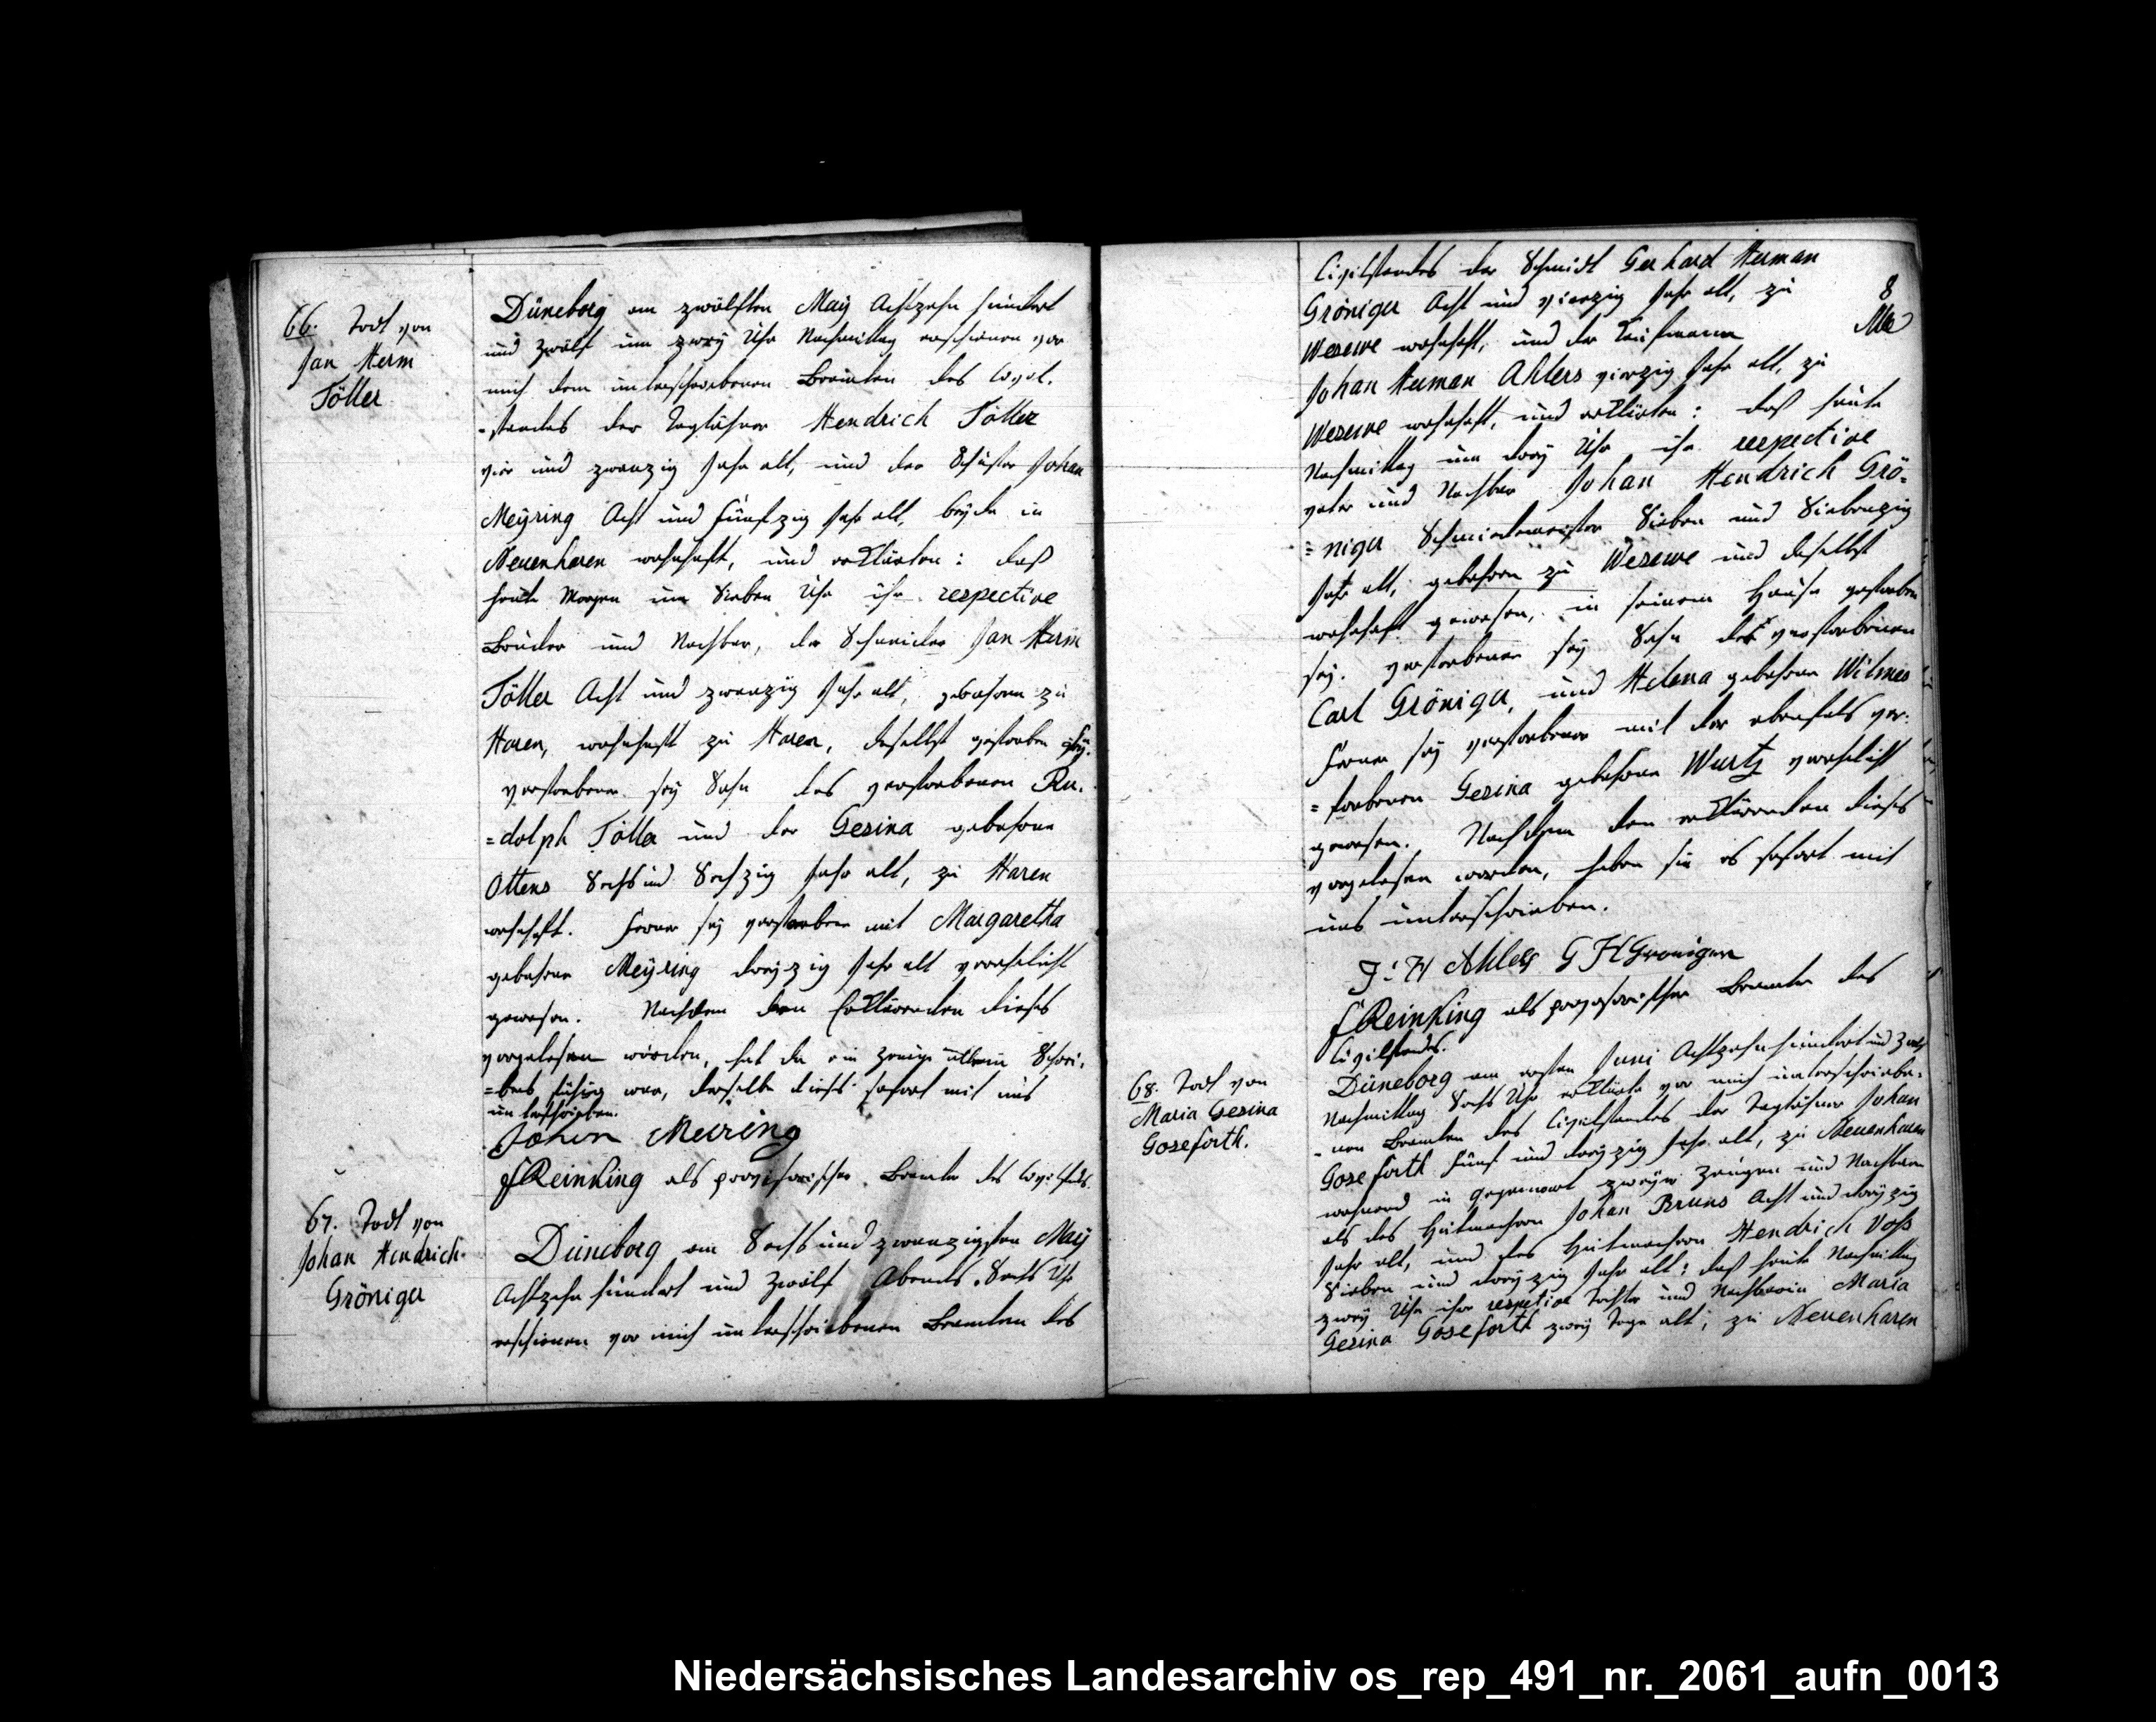 66. Todt von
Jan Herm
Töller
Düneborg am zwölften May Achtzehn hundert
und zwölf um zwey Uhr Nachmittag erschienen vor
mich dem unterschriebenen Beamten des Civil-
-standes der Taglöhner Hendrich Töller
vier und zwanzig Jahr alt, und der Schuster Johan
Meÿring Acht und fünfzig Jahr alt, beyde in
Neuenharen wohnhaft, und erklärten: daß
heute Morgen um Sieben Uhr ihr respective
Bruder und Nachbar, der Schneider Jan Herm
Töller Acht und zwanzig Jahr alt, gebohren zu
Haren, wohnhaft zu Haren, daselbst gestorben sey.
verstorbener sey Sohn des verstorbenen Ru-
=dolph Töller und der Gesina gebohrne
Ottens Sechs und Sechzig Jahr alt, zu Haren
wohnhaft. Ferner sey verstorbener mit Margaretha
gebohrne Meÿring dreyzig Jahr alt verehlicht
gewesen. Nachdem den Erklärenden dieses
vorgelesen worden, hat da ein Zeuge allein Schrei-
=bens fähig war, derselbe dieses sofort mit uns
unterschrieben.
Johan Meiring
fReinking als provisorischer Beamte des Civilstands.
67. Todt von
Johan Hendrich
Gröniger
Düneborg am Sechs und zwanzigsten May
Achtzehn hundert und zwölf Abends Sechs Uhr
erschienen vor mich unterschriebenen Beamten des
8
Civilstandes der Schmidt Gerhard Herman
Gröniger Acht und vierzig Jahr alt, zu
Wesuwe wohnhaft, und der Kaufmann
Johan Herman Ahlers vierzig Jahr alt, zu
Wesuwe wohnhaft, und erklärten: daß heute
Nachmittag um drey Uhr ihr respective
vater und Nachbar Johan Hendrich Grö-
=niger Schmiedemeister Sieben und Siebenzig
Jahr alt, gebohren zu Wesuwe und daselbst
wohnhaft gewesen, in seinem Hause gestorben
sey. verstorbener sey Sohn des verstorbenen
Carl Gröniger, und Helena gebohrne Wilmes
Ferner sey verstorbener mit der ebenfals ver-
=storbenen Gesina gebohrne Wurtz verehlicht
gewesen. Nachdem den erklärenden dieses
vorgelesen worden, haben sie es sofort mit
uns unterschrieben.
J: H Ahlers G H Gronigern
fReinking als provisorischer Beamte des
Civilstandes.
68. Todt von
Maria Gesina
Goseforth.
Düneborg am ersten Juni Achtzehnhundert und zwölf
Nachmittag Sechs Uhr erklärte vor mich unterschriebe-
-nen Beamten des Civilstandes der Taglöhner Johan
Goseforth fünf und dreyzig Jahr alt, zu Neuenharen
wohnend in Gegenwart zweyer Zeugen und Nachbarn
als des Heuermann Johan Bruns Acht und dreyzig
Jahr alt, und des Heuermann Hendrich Voß
Sieben und dreyzig Jahr alt: daß heute Nachmittag
zwey Uhr ihre respetive Tochter und Nachbarin Maria
Gesina Goseforth zwey Tage alt, zu Neuenharen
Niedersächsisches Landesarchiv os_rep_491_nr._2061_aufn_0013